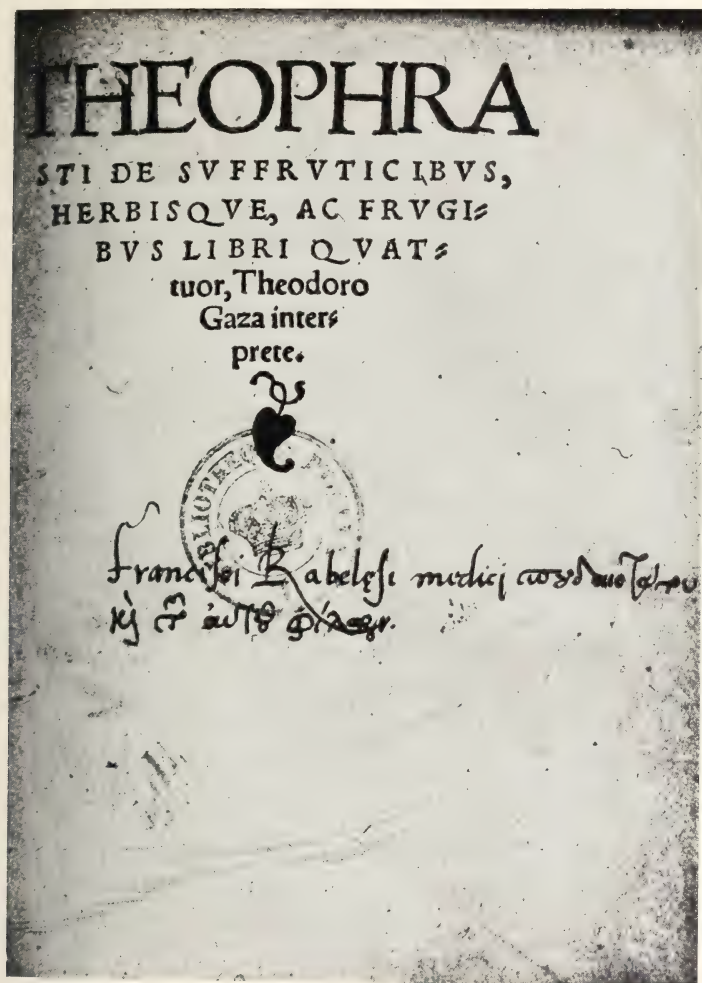 THEOPHRA
STI DE SVFFRVTICIBVS,
HERBISQVE, AC FRVGI⸗
BVS LIBRI QVAT⸗
tuor, Theodoro
Gaza inter⸗
prete.
BIBLIOTHEC
Francisci Rabelęsi medici σπουδαιοτάτου
καὶ τῶν αὐτοῦ φίλων.